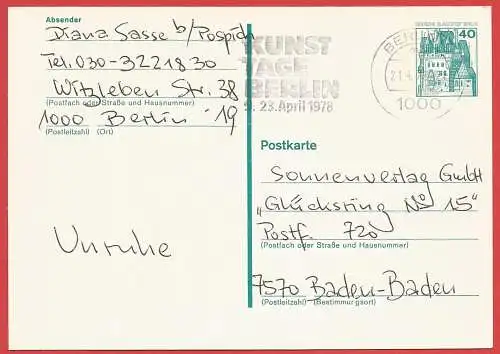 Absender
Diana Sasse b/Pospich
Tel. 030-3221830
Witzleben Str. 38
(Postfach oder Straße und Hausnummer)
1000 Berlin 19
(Postleitzahl) (Ort)
KUNST
TAGE
BERLIN
9. 23. April 1978
40
1000
Postkarte
Sonnenverlag GmbH
"Glücksring No 15"
Postf. 720
(Postfach oder Straße und Hausnummer)
7570 Baden-Baden
(Postleitzahl) (Bestimmungsort)
Unruhe